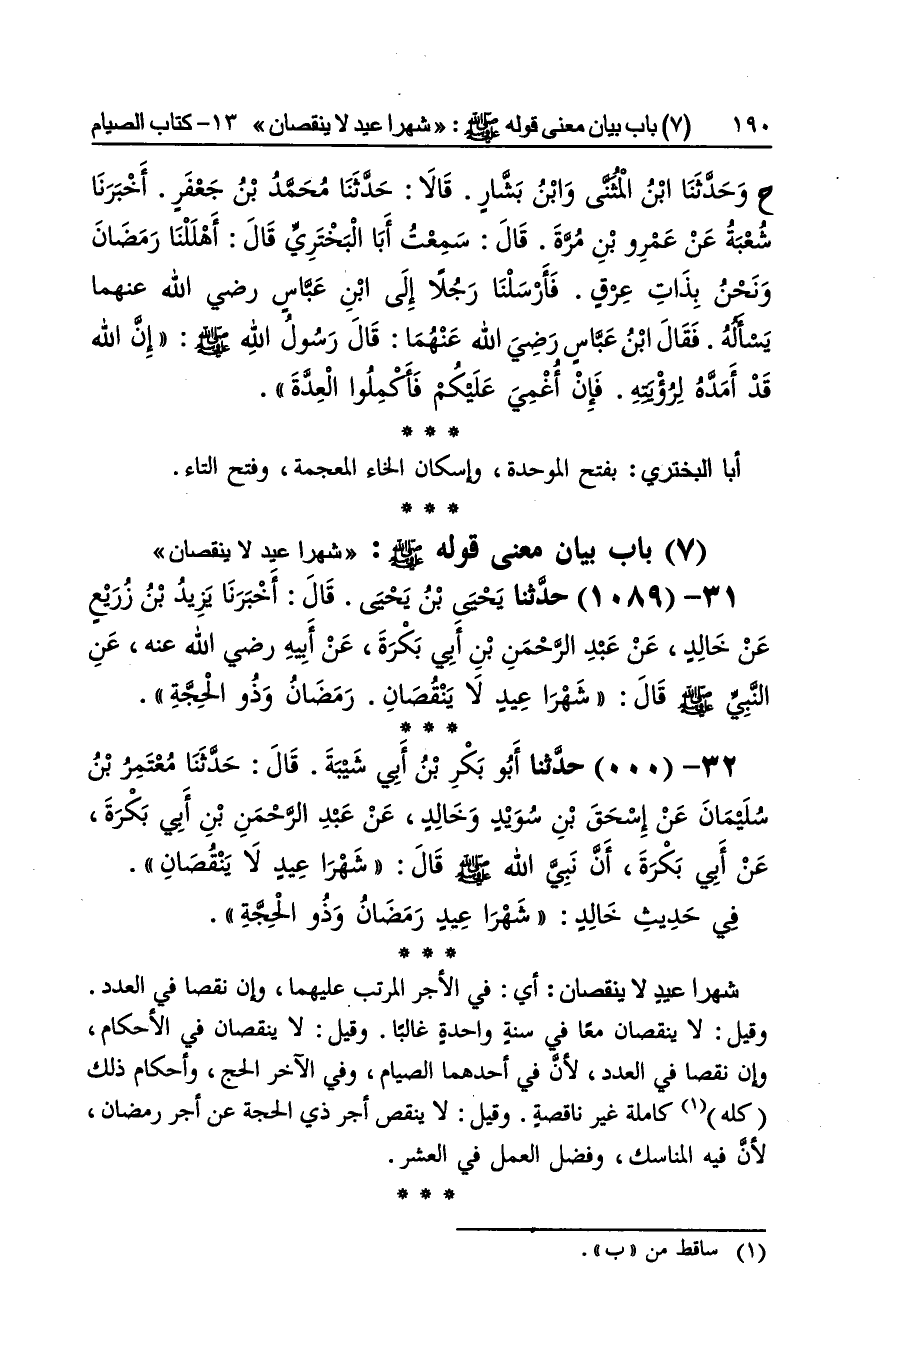 ١٩٠ (٧) باب بيان معنى قوله ﷺ : « شهرا عيد لا ينقصان » ١٣- كتاب الصيام
ح وَحَدَّثَنَا ابْنُ الْمُثَنَّى وَابْنُ بَشَّارٍ . قَالَا : حَدَّثَنَا مُحَمَّدُ بْنُ جَعْفَرٍ . أَخْبَرَنَا
شُعْبَةُ عَنْ عَمْرِو بْنِ مُرَّةَ . قَالَ : سَمِعْتُ أَبَا الْبَخْتَرِيِّ قَالَ : أَهْلَلْنَا رَمَضَانَ
وَنَحْنُ بِذَاتِ عِرْقٍ . فَأَرْسَلْنَا رَجُلًا إِلَى ابْنِ عَبَّاسٍ رضي الله عنهما
يَسْأَلُهُ . فَقَالَ ابْنُ عَبَّاسٍ رَضِيَ الله عَنْهُمَا : قَالَ رَسُولُ اللهِ ﷺ : « إِنَّ الله
قَدْ أَمَدَّهُ لِرُؤْيَتِهِ . فَإِنْ أُغْمِيَ عَلَيْكُمْ فَأَكْمِلُوا الْعِدَّةَ » .
* * *
أبا البختري : بفتح الموحدة ، وإسكان الخاء المعجمة ، وفتح التاء .
* * *
(٧) باب بيان معنى قوله ﷺ : « شهرا عيد لا ينقصان »
٣١- (١٠٨٩) حدَّثنا يَحْيَى بْنُ يَحْيَى . قَالَ : أَخْبَرَنَا يَزِيدُ بْنُ زُرَيْعٍ
عَنْ خَالِدٍ ، عَنْ عَبْدِ الرَّحْمَنِ بْنِ أَبِي بَكْرَةَ ، عَنْ أَبِيهِ رضي الله عنه ، عَنِ
النَّبِيِّ ﷺ قَالَ : « شَهْرَا عِيدٍ لَا يَنْقُصَانِ . رَمَضَانُ وَذُو الْحِجَّةِ » .
* * *
٣٢- (٠٠٠) حدَّثنا أَبُو بَكْرِ بْنُ أَبِي شَيْبَةَ . قَالَ : حَدَّثَنَا مُعْتَمِرُ بْنُ
سُلَيْمَانَ عَنْ إِسْحَقَ بْنِ سُوَيْدٍ وَخَالِدٍ ، عَنْ عَبْدِ الرَّحْمَنِ بْنِ أَبِي بَكْرَةَ ،
عَنْ أَبِي بَكْرَةَ ، أَنَّ نَبِيَّ الله ﷺ قَالَ : « شَهْرَا عِيدٍ لَا يَنْقُصَانِ » .
فِي حَدِيثِ خَالِدٍ : « شَهْرَا عِيدٍ رَمَضَانُ وَذُو الْحِجَّةِ » .
* * *
شهرا عيدٍ لا ينقصان : أي : في الأجر المرتب عليهما ، وإن نقصا في العدد .
وقيل : لا ينقصان معًا في سنةٍ واحدةٍ غالبًا . وقيل : لا ينقصان في الأحكام ،
وإن نقصا في العدد ، لأنَّ في أحدهما الصيام ، وفي الآخر الحج ، وأحكام ذلك
( كله )(١) كاملة غير ناقصةٍ . وقيل : لا ينقص أجر ذي الحجة عن أجر رمضان ،
لأنَّ فيه المناسك ، وفضل العمل في العشر .
* * *
(١) ساقط من « ب » .